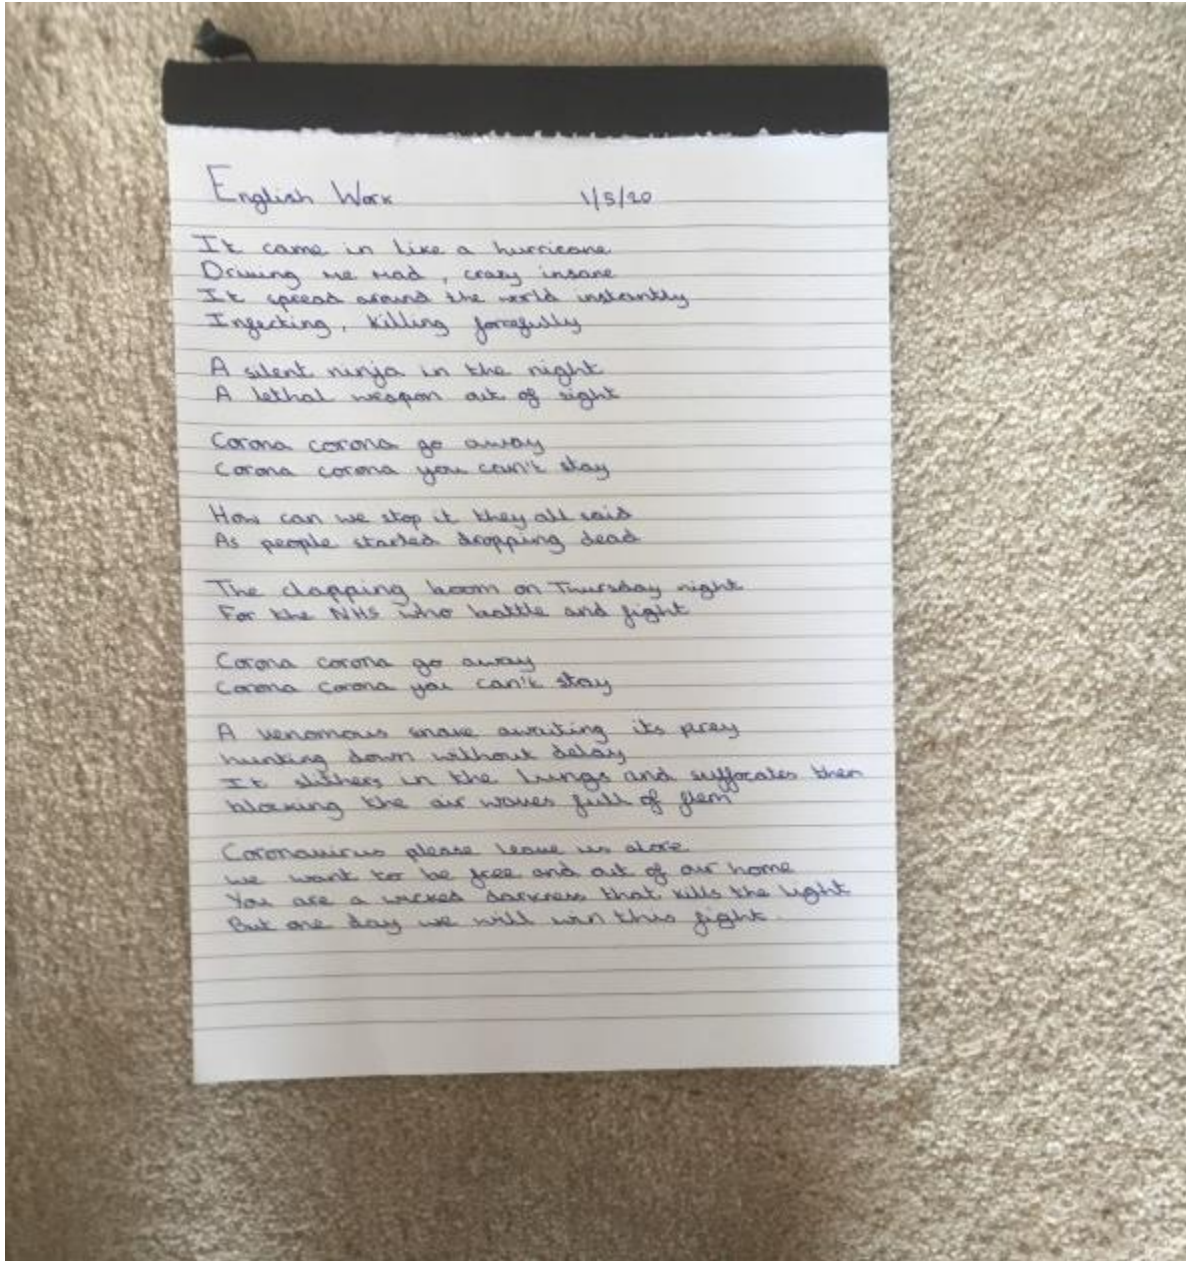 English Work 1/5/20
It came in like a hurricane
Driving me mad, crazy insane
It spread around the world instantly
Infecting, killing forcefully
A silent ninja in the night
A lethal weapon out of sight
Corona corona go away
Corona corona you can't stay
How can we stop it they all said
As people started dropping dead
The clapping boom on Thursday night
For the NHS who battle and fight
Corona corona go away
Corona corona you can't stay
A venomous snake awaiting its prey
hunting down without delay
It slithers in the lungs and suffocates them
blocking the air waves full of flem
Coronavirus please leave us alone
we want to be free and out of our home
You are a wicked darkness that kills the light
But one day we will win this fight.